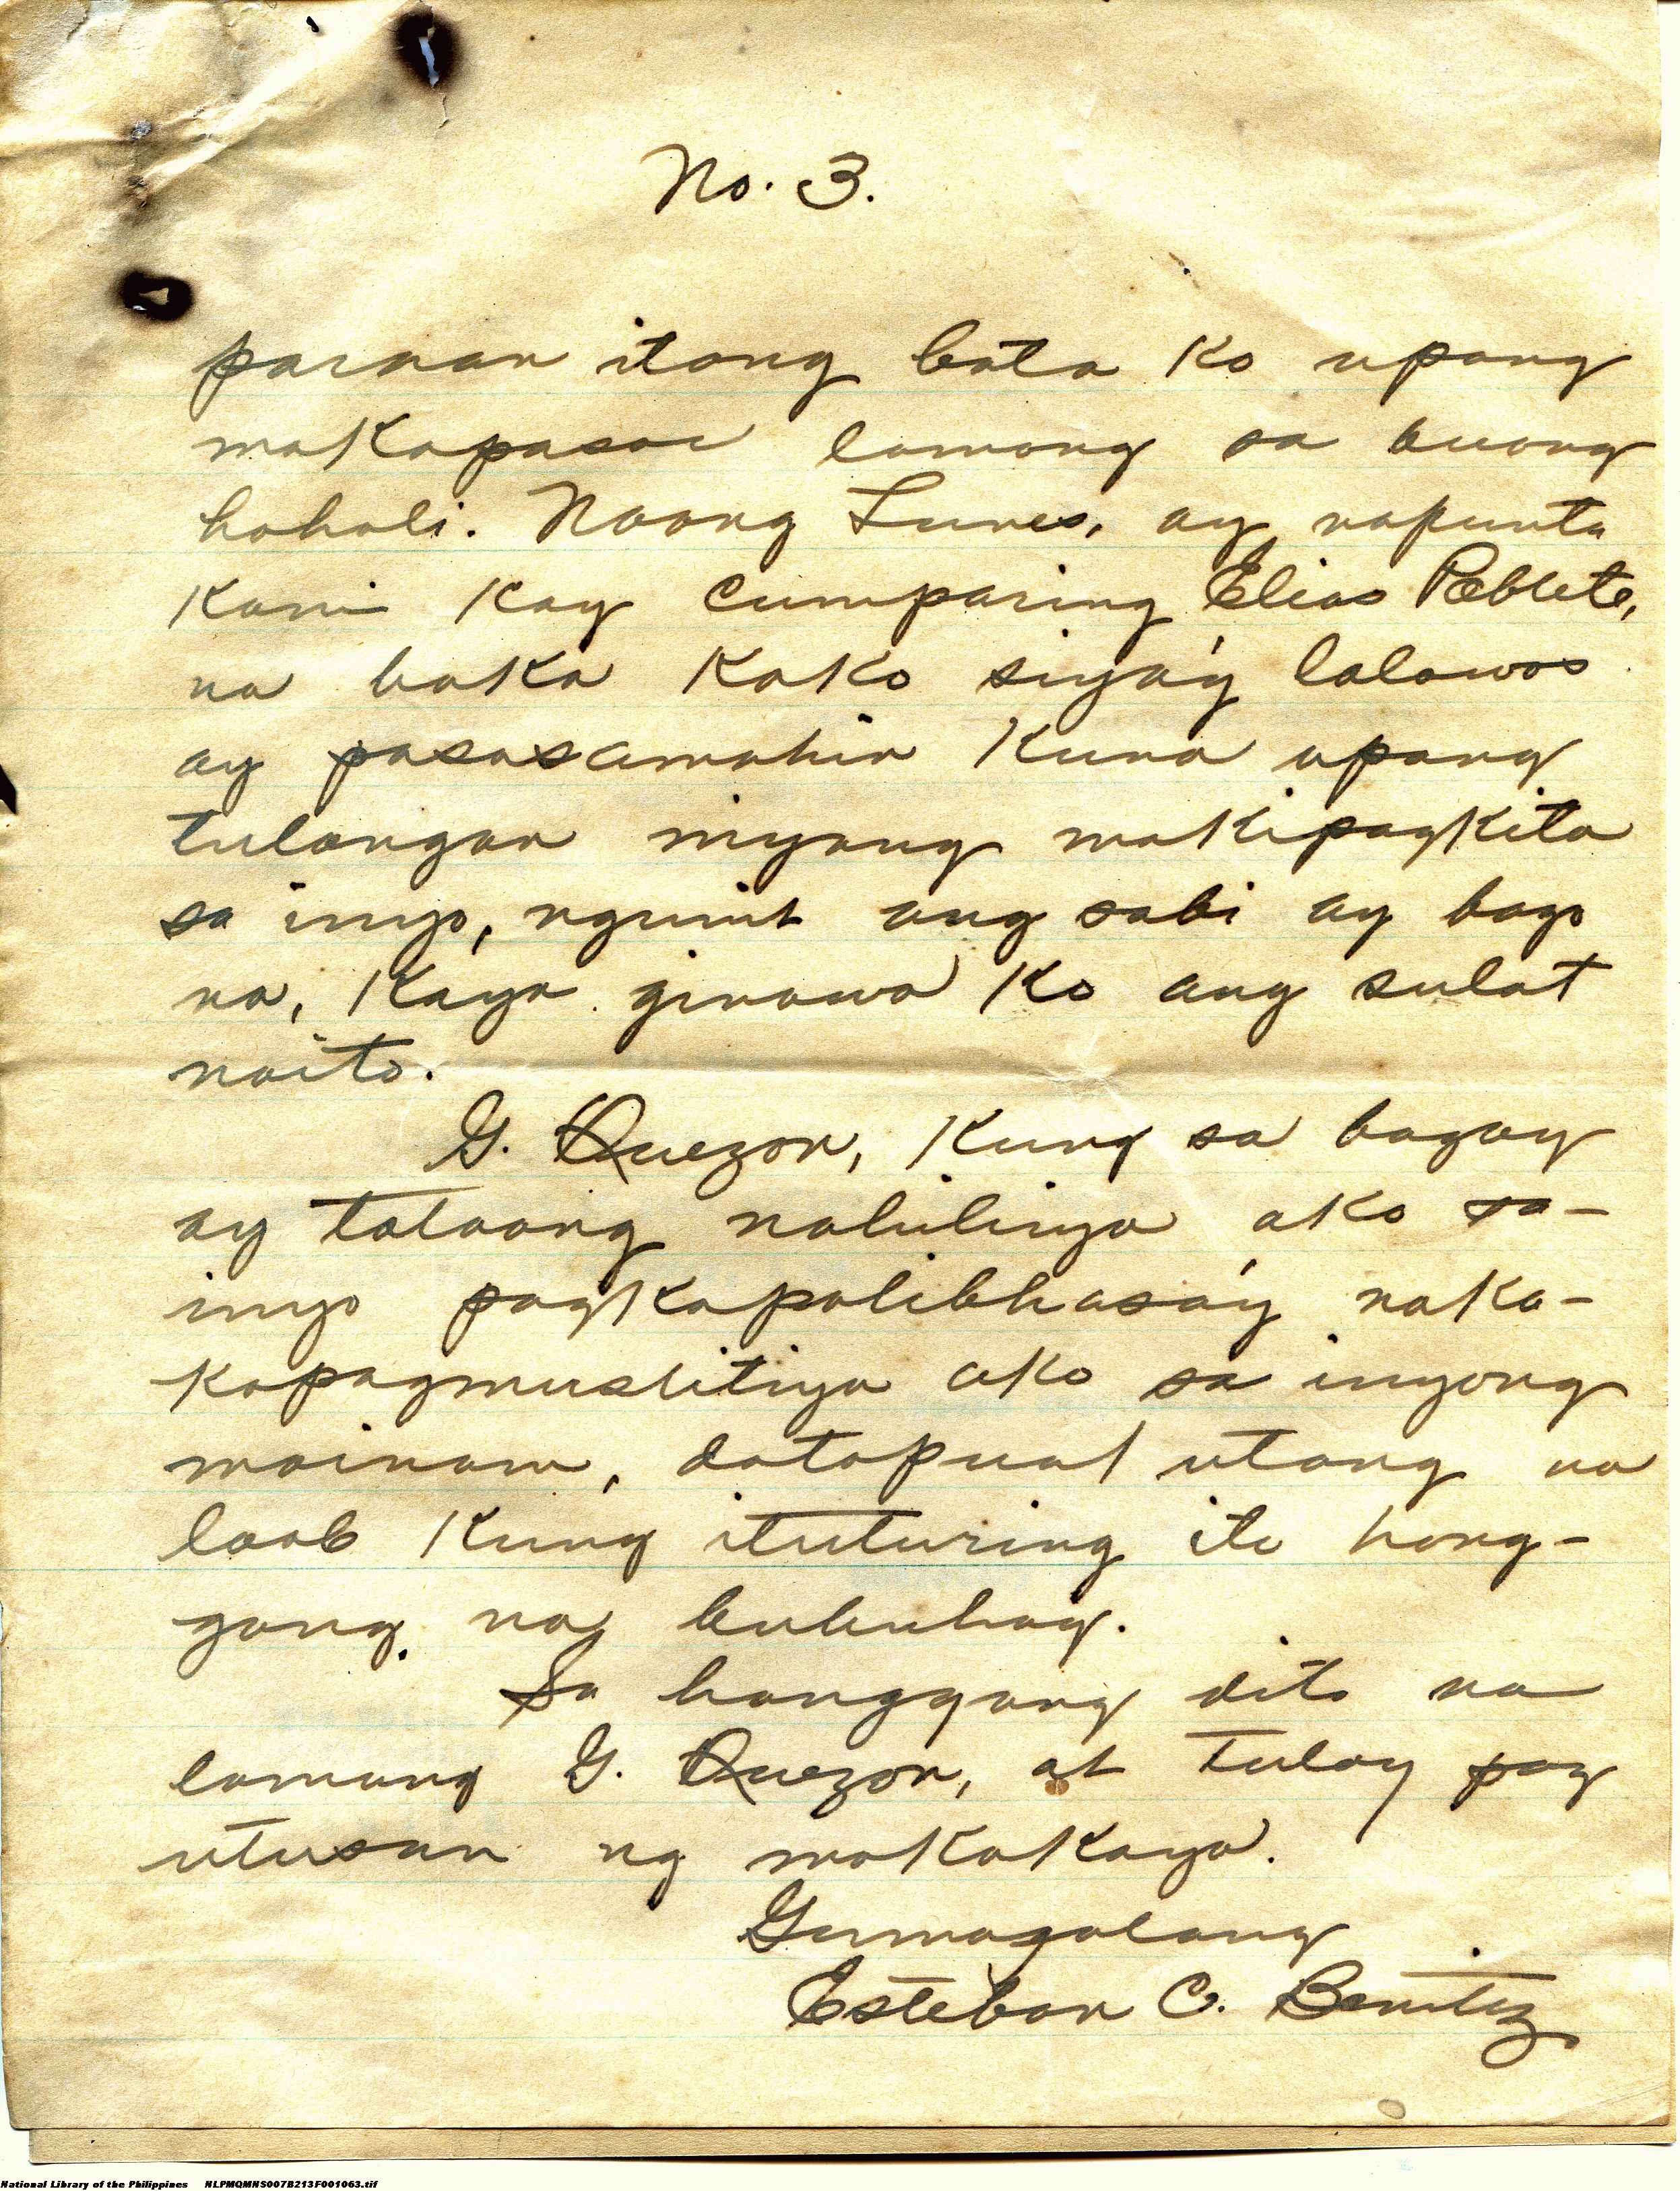 No. 3.
paraan itong bata ko upang
makapasoc lamang sa buong
hohali. Noong Lunes, ay napunta
kami kay cumparing Elias Poblete,
na baka kako siya'y lalawas
ay pasasamahin kuna upang
tulangan niyang makipagkita
sa inyo, nguni't ang sabi ay bago
na, kaya ginawa ko ang sulat
naito.
G. Quezon, kung sa bagay
ay talaang nalulinya ako sa-
inyo pagkapalibhasa'y naka-
kapagmuslitiya ako sa inyong
mainam, datapua't utang na
loob kung ituturing ito hang-
gang na bubuhay.
Sa hanggang dito na
lamang G. Quezon, at tuloy pag
utusan ng makakaya.
Gumagalang
Esteban C. Benitez
National Library of the Philippines NLPMQMNS007B213F001063.tif